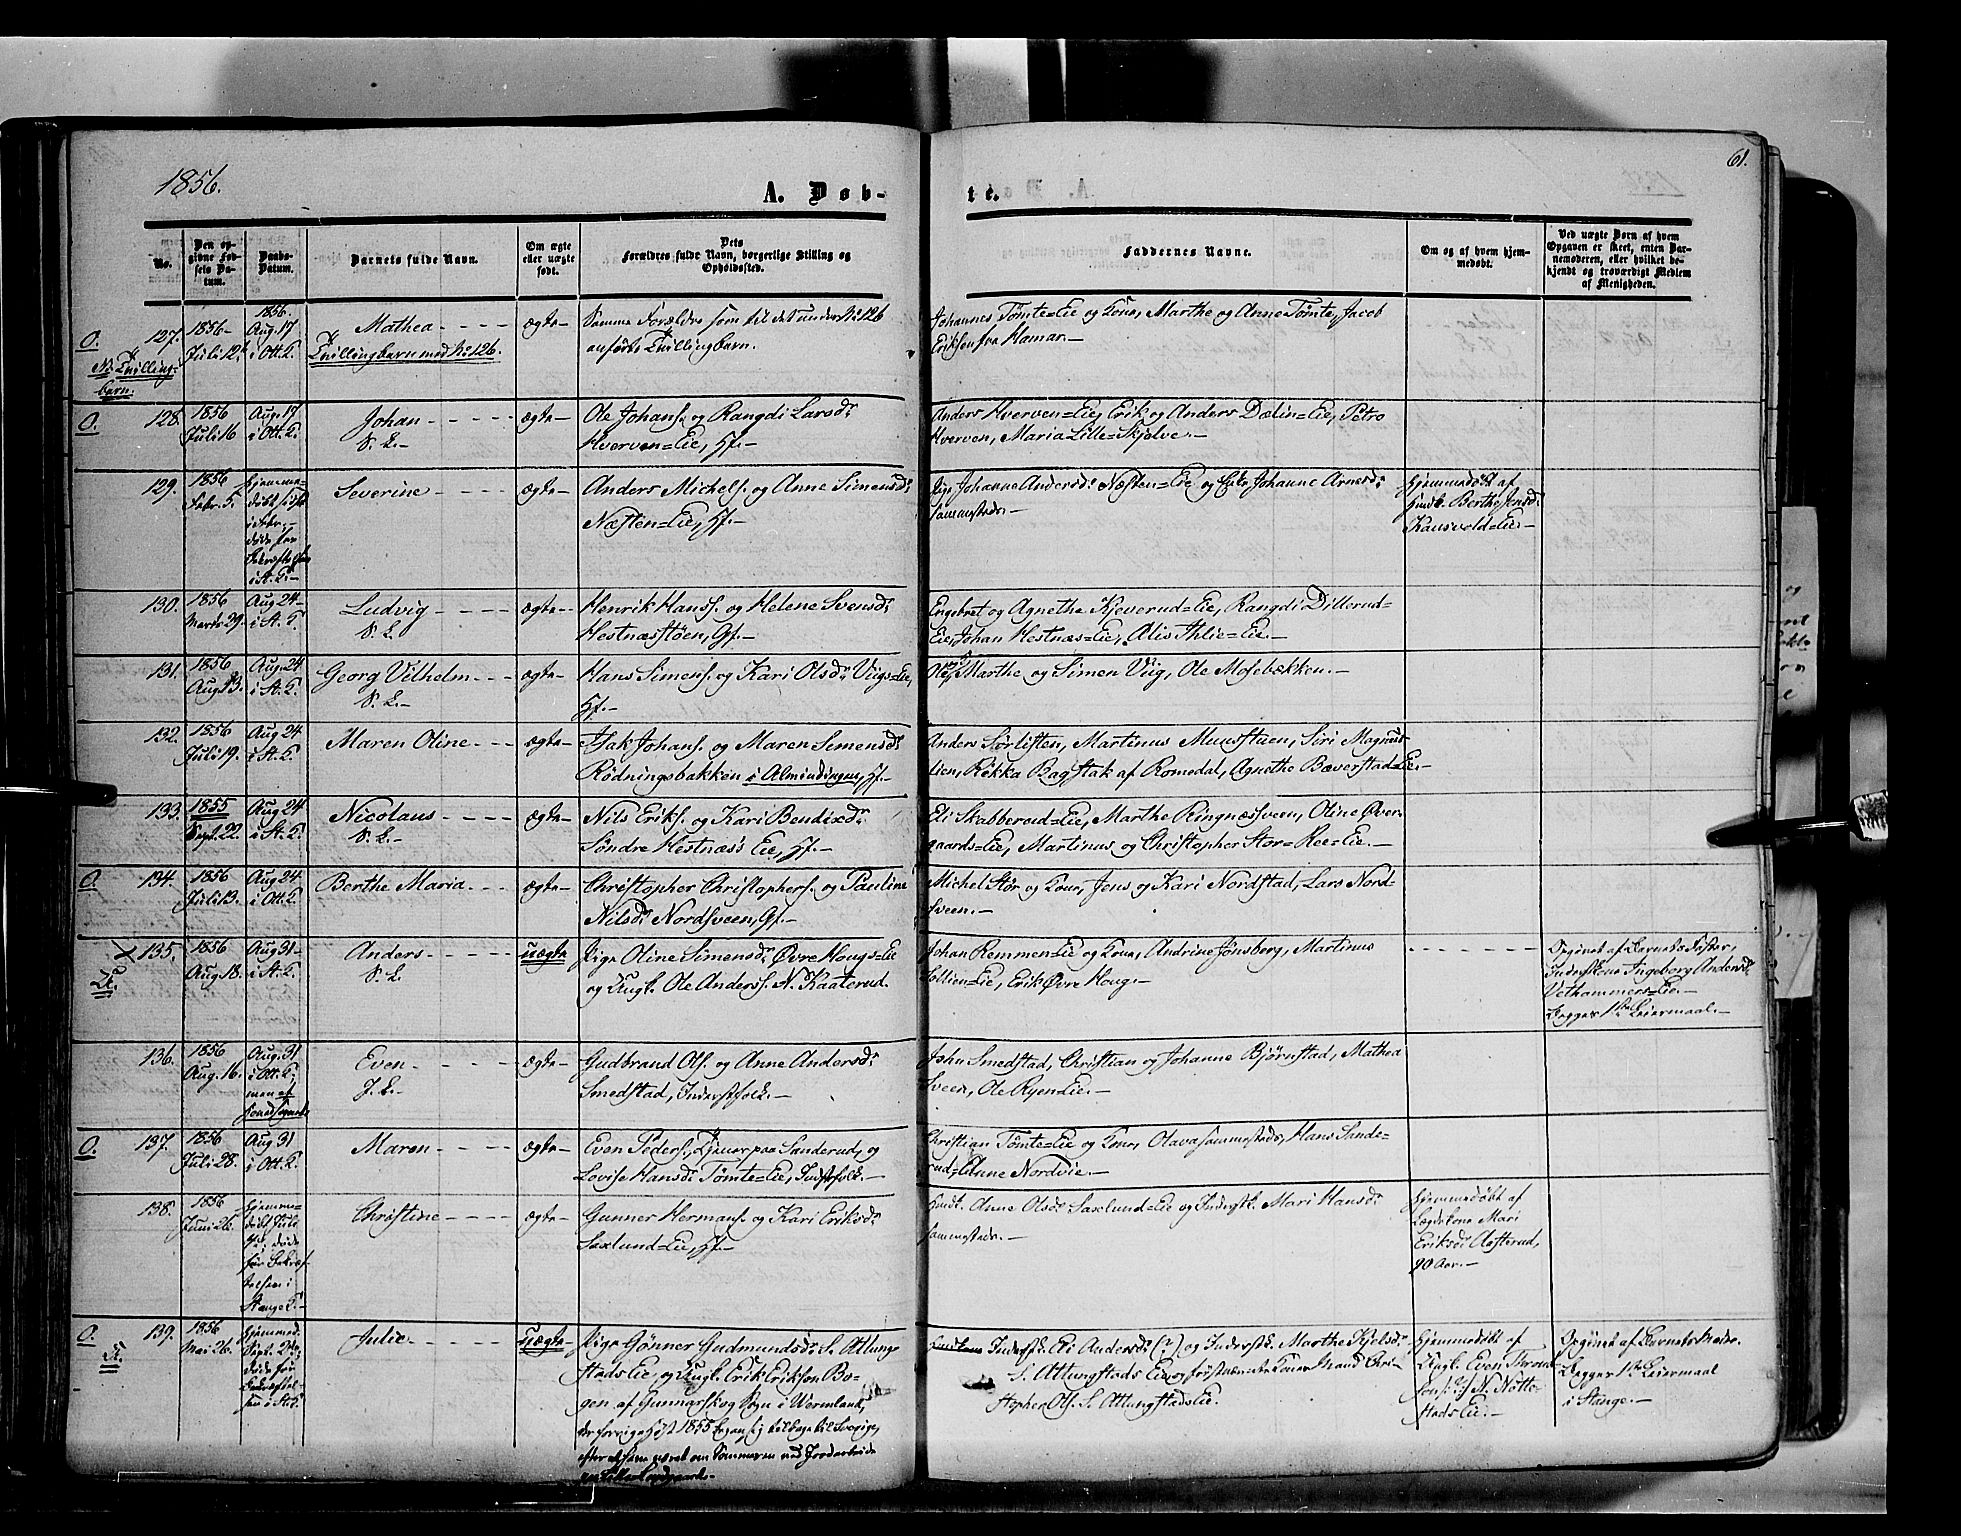 1856.
A. Døb-
te.
61.
No.
Den op-
givne Fød-
sels Da-
tum.
Daabs-
Datum.
Barnets fulde Navn.
Om ægte
eller uægte
født.
Dets
Forældres fulde Navn, borgerlige Stilling og
Opholdssted.
Faddernes Navne.
Om og af hvem hjem-
medøbt.
Ved uægte Børn af hvem
Opgaven er skeet, enten Bar-
nemoderen, eller hvilket be-
kjendt og troværdigt Medlem
af Menigheden.
O. 127.
NB Tvilling-
barn.
1856
Juli 12.
1856.
Aug. 17
i Ott. K.
Mathea
Tvillingbarn med No 126.
ægte
Samme Forældre som til det under No 126
anførte Tvillingbarn.
Johannes Tømte-Eie og Kone, Marthe og Anne Tømte, Jacob
Eriksen fra Hamar.
O. 128.
1856
Juli 16
Aug. 17
i Ott. K.
Johan
S. L.
ægte
Ole Johans. og Rangdi Larsd.
Hverven-Eie, Hf.
Anders Hverven-Eie, Erik og Anders Dælin-Eie, Petro
Hverven, Maria Lille-Skjelve.
129.
1856
Febr. 5.
Hjemme-
døbt
i Febr.,
døde før
i St. K.
Severine
ægte
Anders Michels. og Anne Simensd.
Næsten-Eie, Hf.
Pige Johanne Andersd. Næsten-Eie og Johanne Arnesd.
sammesteds.
Hjemmedøbt af
Berthe Jensd.
Kausvold Eie.
130.
1856
Marts 29.
Aug 24
i St. K.
Ludvig
S. L.
ægte
Henrik Hans. og Helene Svensd.
Hestnæstøen, Gf.
Engebret og Agnethe Kjeverud-Eie, Rangdi Dillerud-
Eie, Johan Hestnæs-Eie, Alis Thlie-Eie.
131.
1856
Aug. 13.
Aug. 24
i St. K.
Georg Vilhelm
S. L.
ægte
Hans Simens. og Kari Olsd. Viigs-Eie,
Hf.
Ole, Marthe og Simen Viig, Ole Mosebækken.
132.
1856
Juli 19.
Aug. 24
i St. K.
Maren Oline
ægte
Isak Johans. og Maren Simensd.
Rødningsbakken i Almindingen, Hf.
Anders Sørlisten, Martinus Muustuen, Siri Magnus-
lien, Rikka Bagstak af Romedal, Agnethe Bæverstad-Eie.
133.
1855
Sept. 22.
Aug 24
i St. K.
Nicolaus
S. L.
ægte
Nils Eriks. og Kari Bendixd.
Søndre Hestnæs Eie, Hf.
Eli Skabberud-Eie, Marthe Ringnæssveen, Oline Øver-
gaards-Eie, Martinus og Christopher Stor-Ree-Eie.
O. 134.
1856
Juli 13.
Aug 24
i Ott. K.
Berthe Maria
ægte
Christopher Christophers. og Pauline
Nilsd. Nordsveen, Gf.
Michel Stør og Kone, Jens og Kari Nordstad, Lars Nord-
sveen.
X 135.
1856
Aug. 18.
Aug 31
i St. K.
Anders
S. L.
uægte
Pige Oline Simensd. Øvre Hougs-Eie
og Ungk. Ole Anders. N. Kaaterud.
Johan Remmen-Eie og Kone, Andrine Jønsberg, Martinus
Lillien-Eie, Erik Øvre Houg.
Opgivet af Barnets Faster,
Inderstkone Ingeborg Andersd.
Vethammers-Eie.
Begges 1ste Leiermaal.
136.
1856
Aug. 16.
Aug. 31
i Ott. K.
men af
Sognet
Even
J. L.
ægte
Gudbrand Ols. og Anne Andersd.
Smedstad, Inderstfolk.
John Smedstad, Christian og Johanne Bjørnstad, Mathea
Sveen, Ole Ryen-Eie.
O. 137.
1856
Juli 28.
Aug 31
i Ott. K.
Maren
ægte
Even Peders., Tjener paa Sanderud, og
Lovise Hansd. Tømte-Eie, Indstfolk.
Christian Tømte-Eie og Kone, Olava sammesteds, Hans Sande-
rud, Anne Nordvie.
138.
1856
Juni 26.
Hjemme-
døbt
døde
før Bekræf-
telsen i
Stange K.
Christine
ægte
Gunner Hermans. og Kari Eriksd.
Saxlund-Eie, Hf.
Anne Olsd. Saxlund-Eie og Inderstk. Mari Hansd.
sammesteds.
Hjemmedøbt af
Lægdekone Mari
Eriksd. Aasterud,
90 Aar.
O. 139.
1856
Mai 26.
Hjemmed.
døde før
Bekræftel-
sen i St. K.
Julie
uægte
Pige Gønner Gudmundsd. S. Atlung-
stads Eie, og Ungk. Erik Erikson Bo-
gen af Gunnarskog Sogn i Wermland,
der forrige Høst 1855 begav sig tilbage til Sverige,
efter at have været om Sommeren ved Jordarbeide
Inderstk. Eli Andersd. (?) og Inderstk. Marthe Kjelsd.
S. Atlungstads Eie og førstnævnte Kones Mand Chri-
stopher Ols. S. Atlungstads Eie.
Hjemmedøbt af
Ungk. Even Thron-
sens. (?) N. Notte-
stads Eie.
Opgivet af Barnets Moder.
Begges 1ste Leiermaal
i Stange.